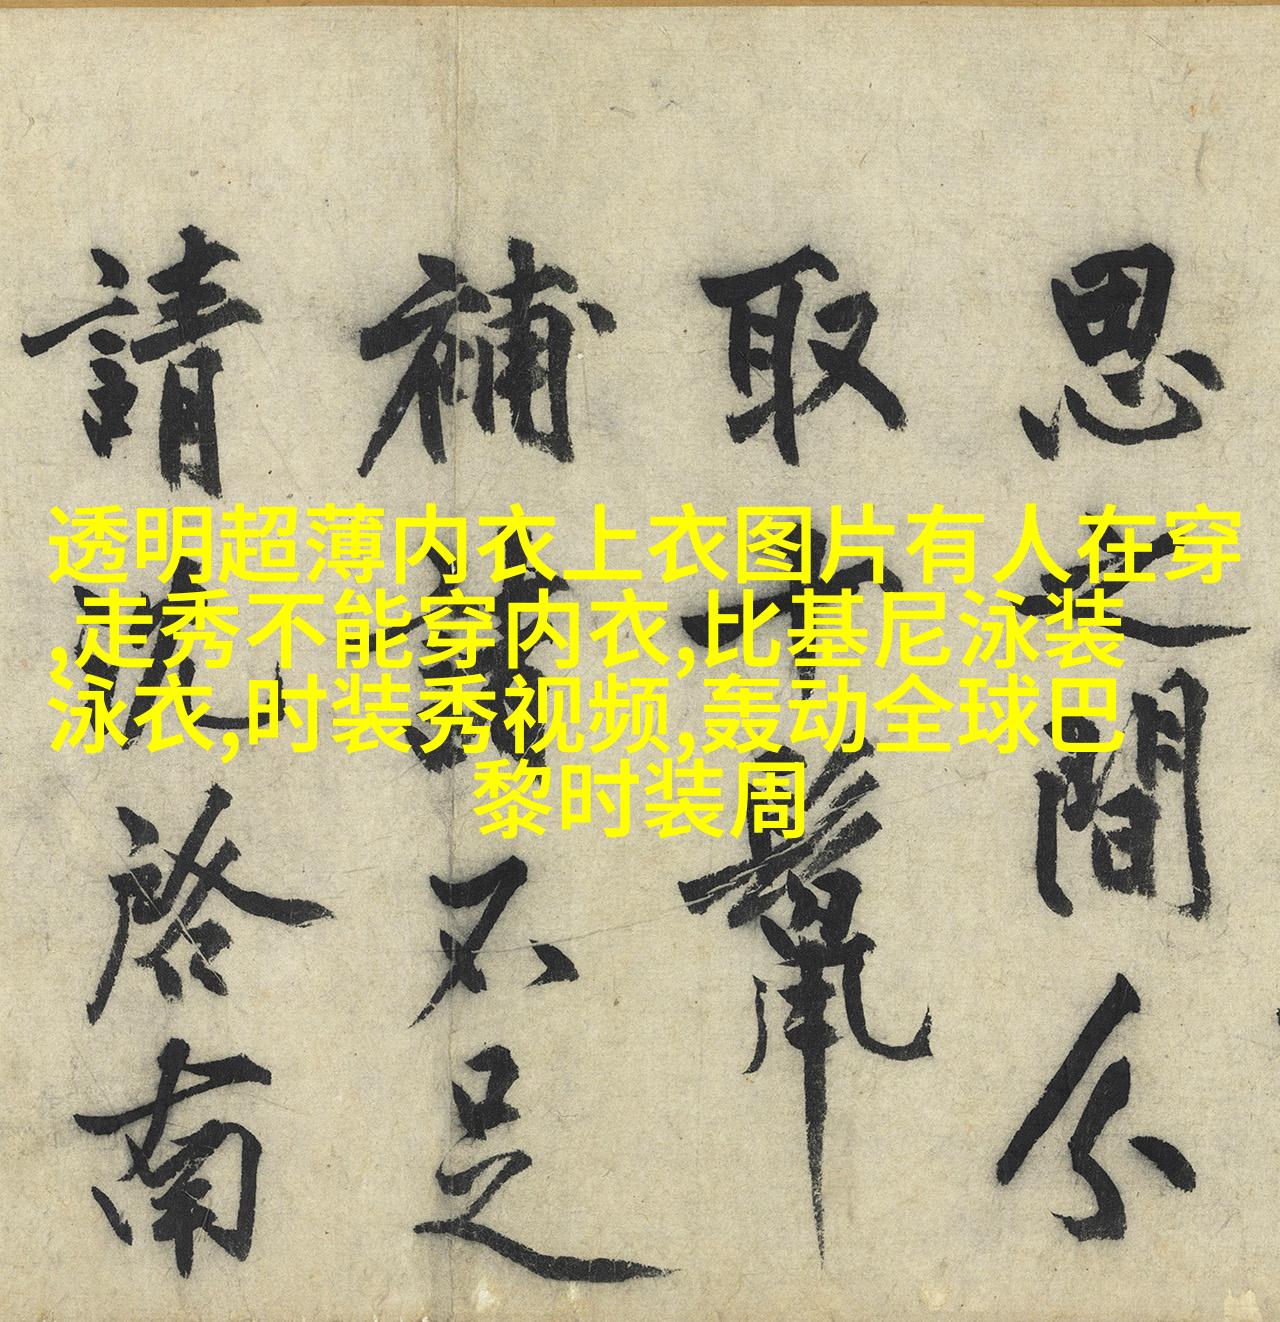 透明超薄内衣上衣图片有人在穿
,走秀不能穿内衣,比基尼泳装
泳衣,时装秀视频,轰动全球巴
黎时装周
思之間分
取十鬣
補諸不足
請沈啓南